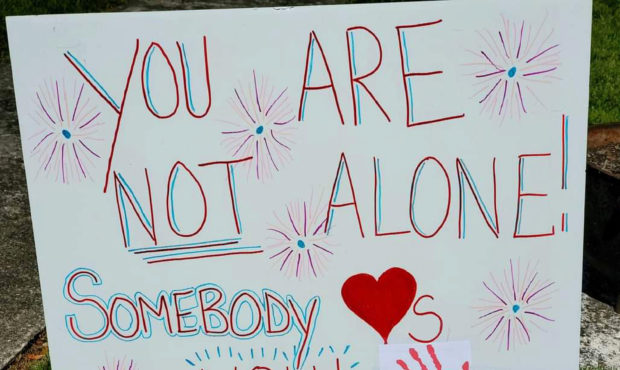 YOU ARE
NOT ALONE!
SOMEBODY ❤s